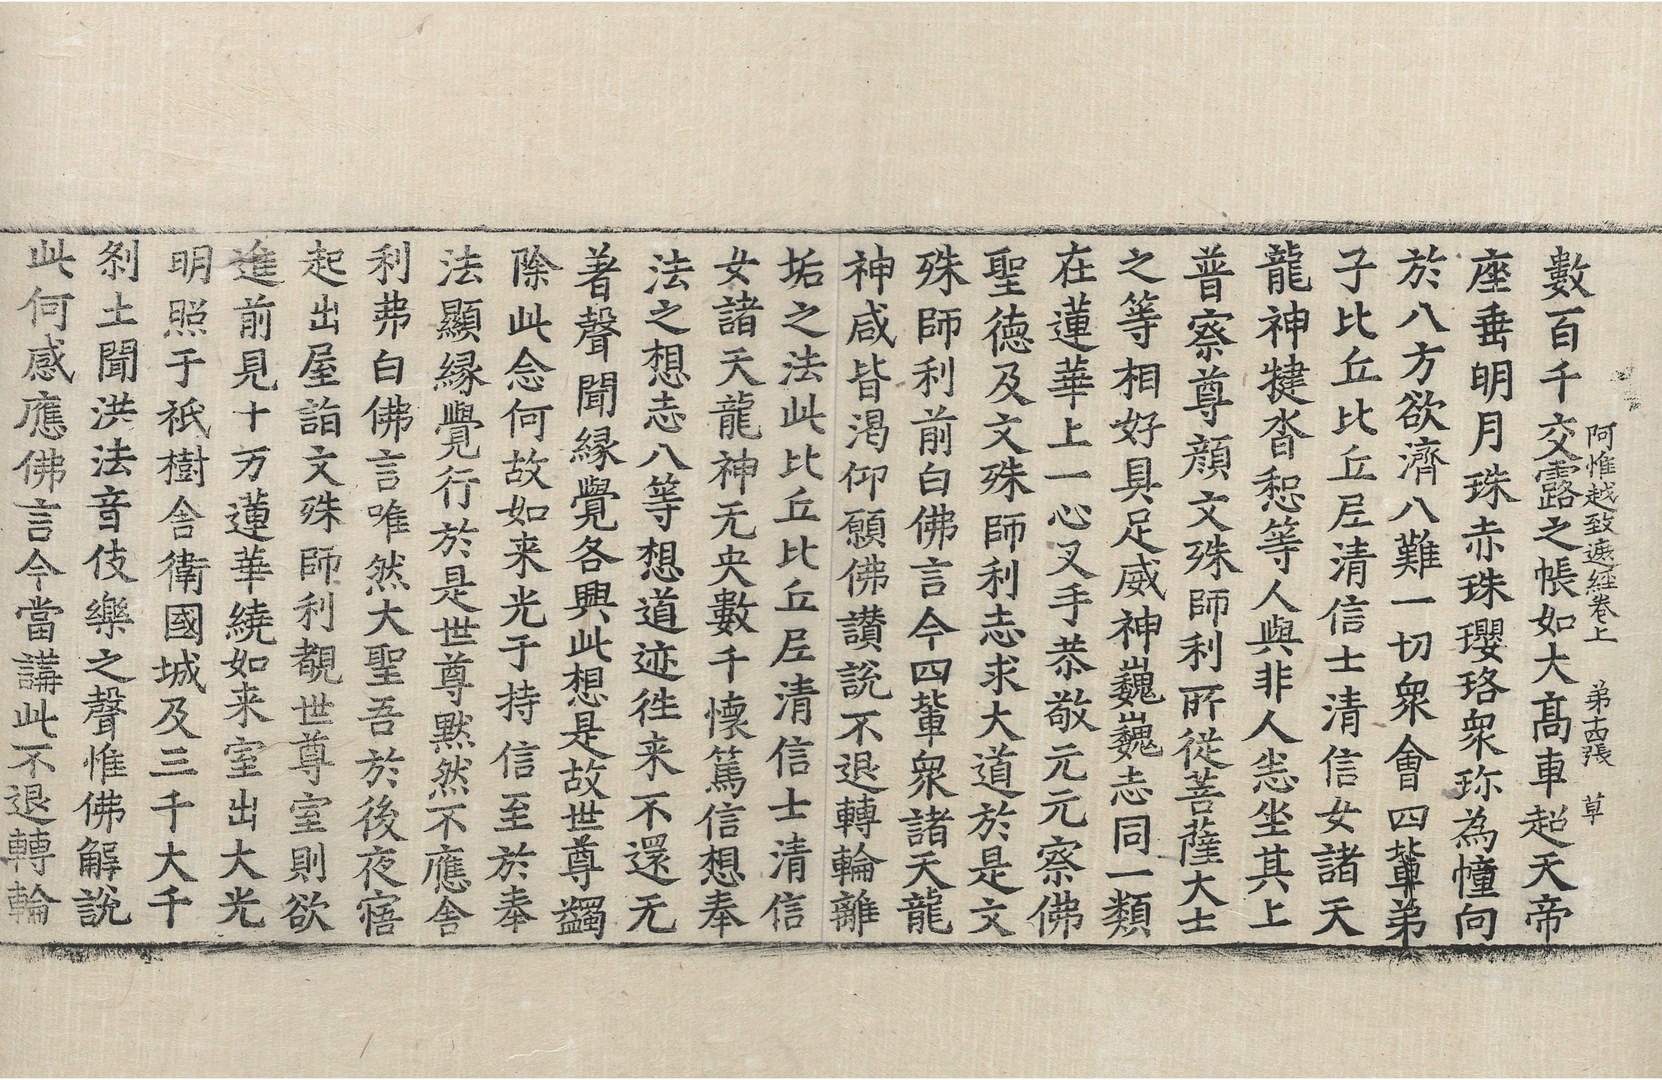 阿惟越致遮經卷上　第十四張　草
數百千交露之帳如大高車超天帝
座垂明月珠赤珠瓔珞衆珎為幢向
於八方欲濟八難一切衆會四輩弟
子比丘比丘尼清信士清信女諸天
龍神揵沓惒等人與非人悉坐其上
普察尊顔文殊師利所從菩薩大士
之等相好具足威神巍巍志同一類
在蓮華上一心叉手恭敬元元察佛
聖德及文殊師利志求大道於是文
殊師利前白佛言今四輩衆諸天龍
神咸皆渴仰願佛讃說不退轉輪離
垢之法此比丘比丘尼清信士清信
女諸天龍神无央數千懷篤信想奉
法之想志八等想道迹往来不還无
著聲聞緣覺各興此想是故世尊蠲
除此念何故如来光于持信至於奉
法顯緣覺行於是世尊默然不應舍
利弗白佛言唯然大聖吾於後夜寤
起出屋詣文殊師利覩世尊室則欲
進前見十万蓮華繞如来室出大光
明照于祇樹舍衛國城及三千大千
刹土聞洪法音伎樂之聲惟佛解說
此何感應佛言今當講此不退轉輪